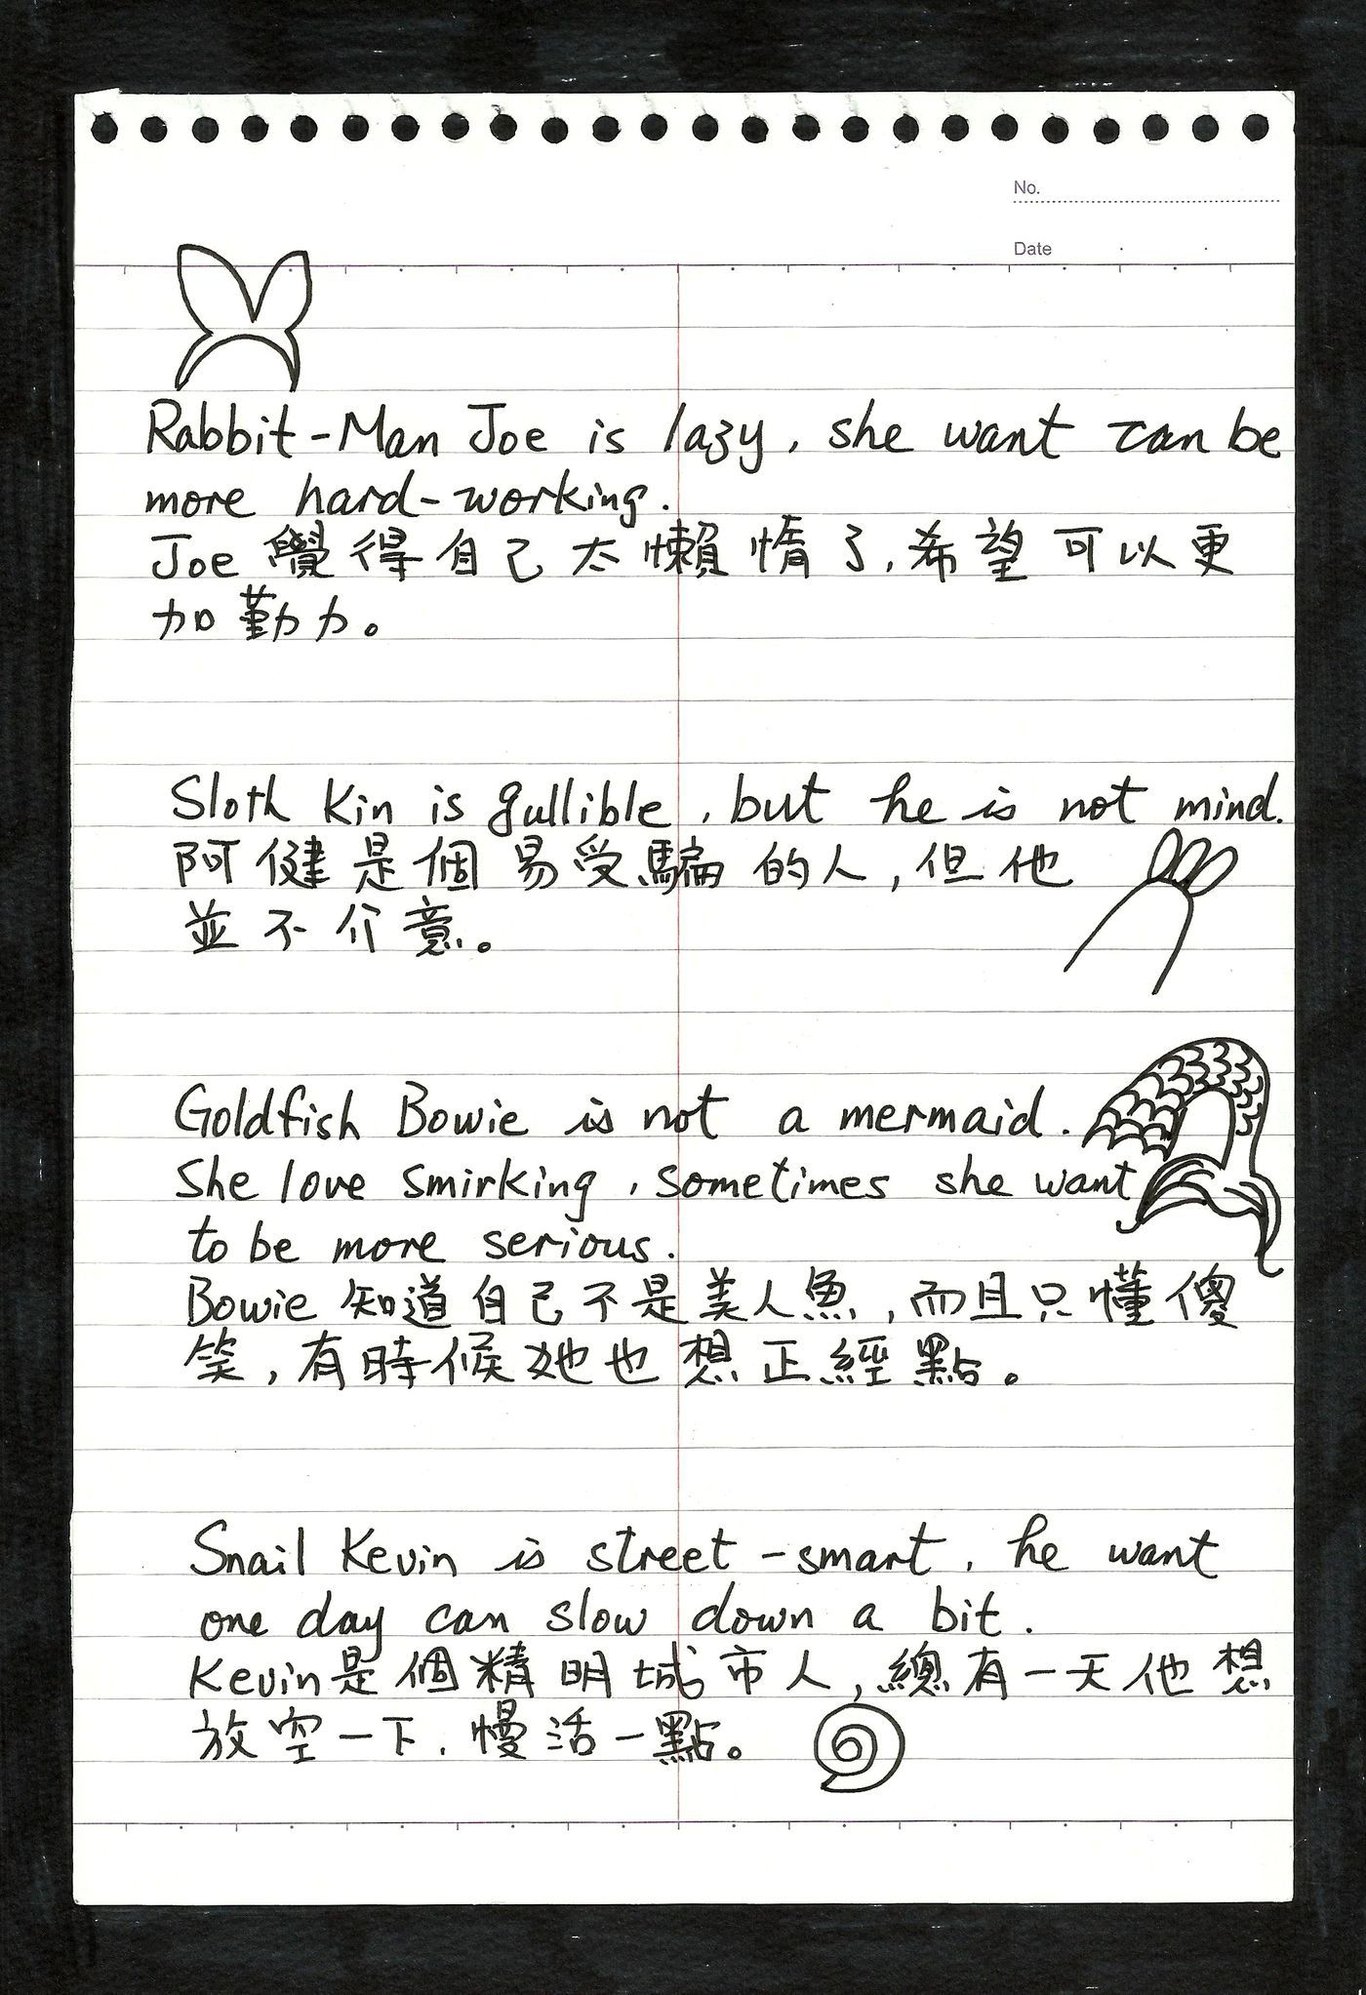 No.
Date
Rabbit-Man Joe is lazy, she want can be
more hard-working.
Joe 覺得自己太懶惰了,希望可以更
加勤力。
Sloth Kin is gullible, but he is not mind.
阿健是個易受騙的人,但他
並不介意。
Goldfish Bowie is not a mermaid.
She love smirking, sometimes she want
to be more serious.
Bowie 知道自己不是美人魚,而且只懂傻
笑,有時候她也想正經點。
Snail Kevin is street-smart, he want
one day can slow down a bit.
Kevin是個精明城市人,總有一天他想
放空一下,慢活一點。